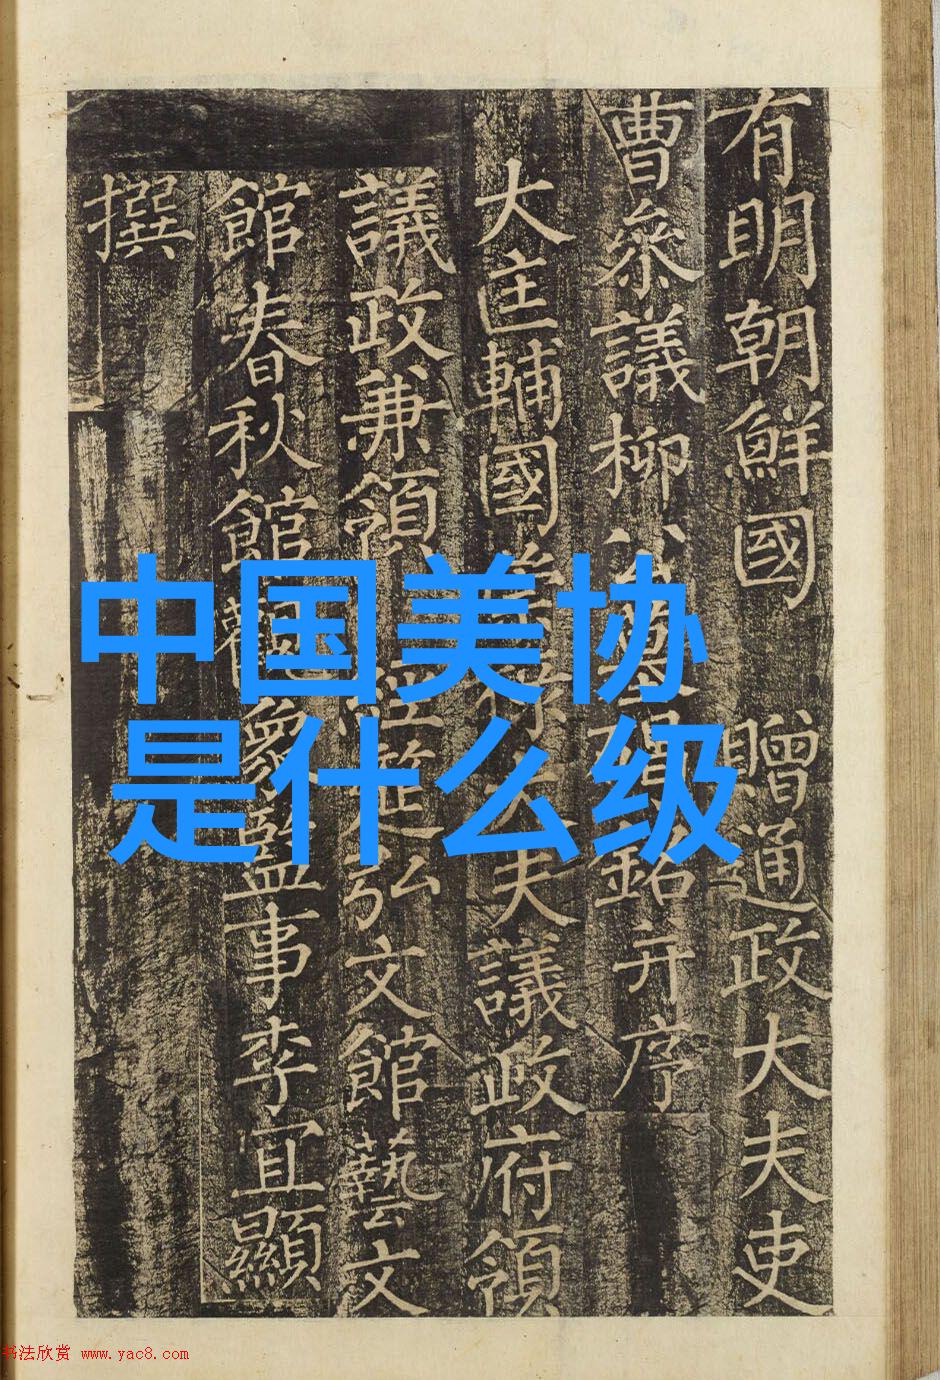 有明朝鮮國 贈通政大夫吏
曹叅議柳公墓碣銘并序
大匡輔國崇祿大夫議政府領
議政兼領經筵弘文館藝文
館春秋館觀象監事李宜顯
撰
中国美协
是什么级
书法欣赏 www.yac8.com